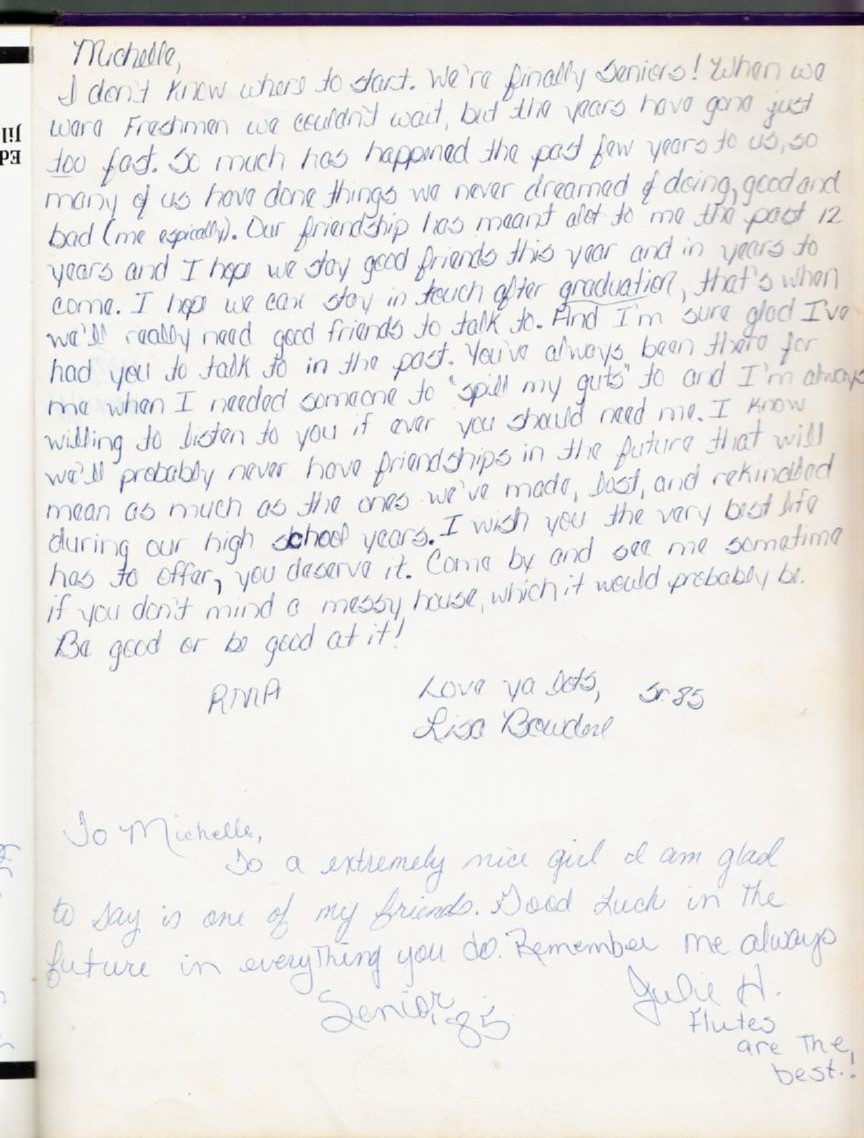 Michelle,
I don't know where to start. We're finally Seniors! When we
were Freshmen we couldn't wait, but the years have gone just
too fast. So much has happened the past few years to us, so
many of us have done things we never dreamed of doing, good and
bad (me espically). Our friendship has meant alot to me the past 12
years and I hope we stay good friends this year and in years to
come. I hope we can stay in touch after graduation, that's when
we'll really need good friends to talk to. And I'm sure glad I've
had you to talk to in the past. You've always been there for
me when I needed someone to "spill my guts" to and I'm always
willing to listen to you if ever you should need me. I know
we'll probably never have friendships in the future that will
mean as much as the ones we've made, lost, and rekindled
during our high school years. I wish you the very best life
has to offer, you deserve it. Come by and see me sometime
if you don't mind a messy house, which it would probably be.
Be good or be good at it!
RMA
Love ya lots, Sr. 85
Lisa
To Michelle,
To a extremely nice girl I am glad
to say is one of my friends. Good Luck in the
future in everything you do. Remember me always
Senior 85
Julie H.
Flutes
are the
best.!